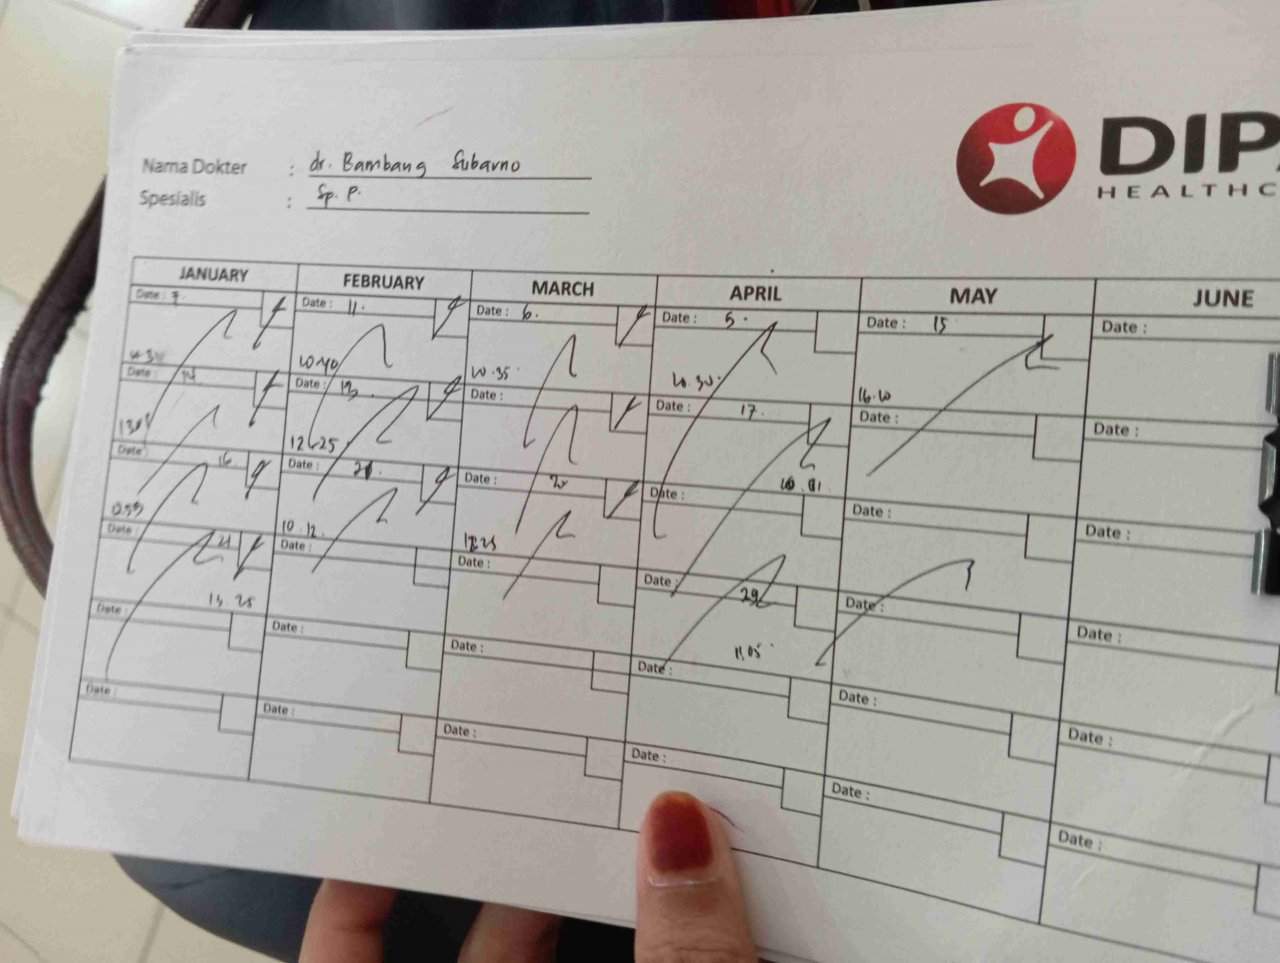 Nama Dokter : dr. Bambang Subarno
Spesialis : Sp. P.
DIP
HEALTHC
JANUARY FEBRUARY MARCH APRIL MAY JUNE
Date : 7. Date : 11. Date : 6. Date : 5. Date : 15 Date :
10.40 10.35 10.30 16.10
Date : 14 Date : 13. Date : Date : 17. Date : Date :
12.25
Date : 16 Date : Date : 20 Date : Date : Date :
10.12
Date : 21 Date : Date : Date : 29 Date : Date :
13.25 11.05
Date : Date : Date : Date : Date : Date :
Date : Date : Date : Date : Date : Date :